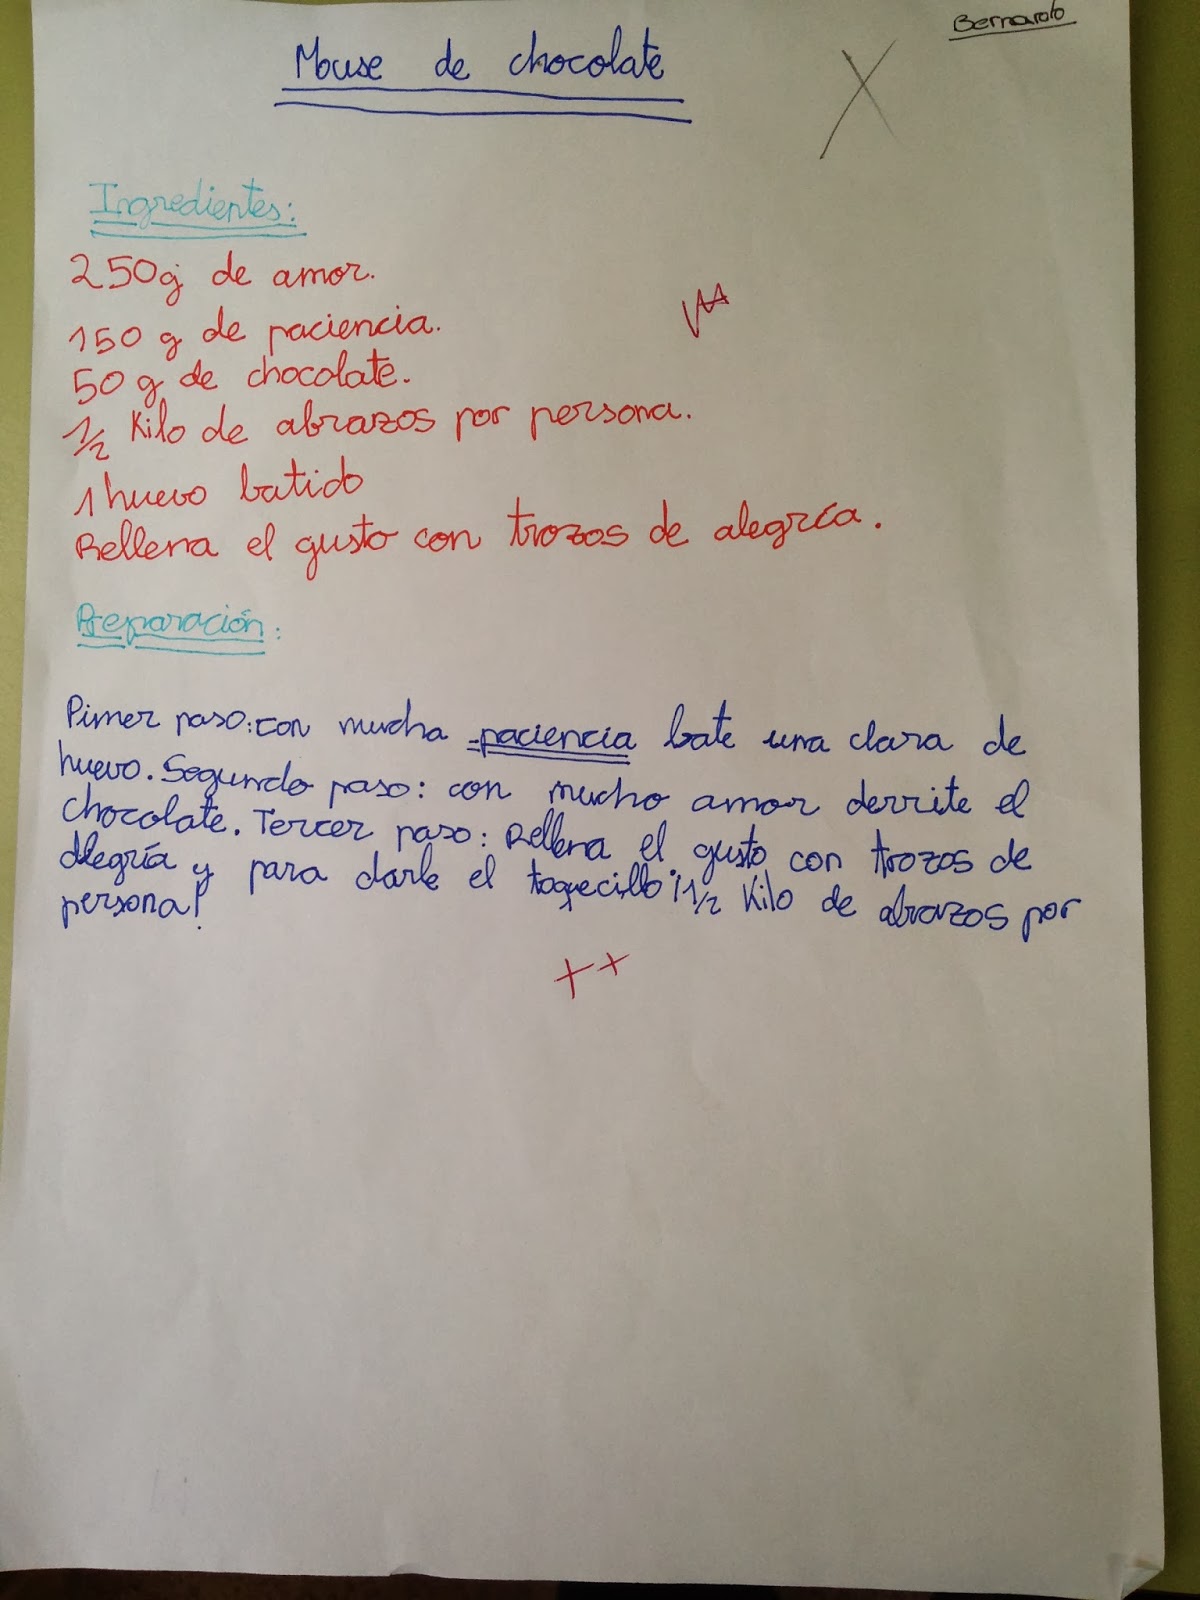 Bernardo
Mouse de chocolate
Ingredientes:
250g de amor.
150 g de paciencia.
50 g de chocolate.
1/2 Kilo de abrazos por persona.
1 huevo batido
Rellena el gusto con trozos de alegría.
Preparación:
Pimer paso: con mucha paciencia bate una clara de
huevo. Segundo paso: con mucho amor derrite el
chocolate. Tercer paso: Rellena el gusto con trozos de
alegría y para darle el toquecillo ¡1/2 Kilo de abrazos por
persona!
++